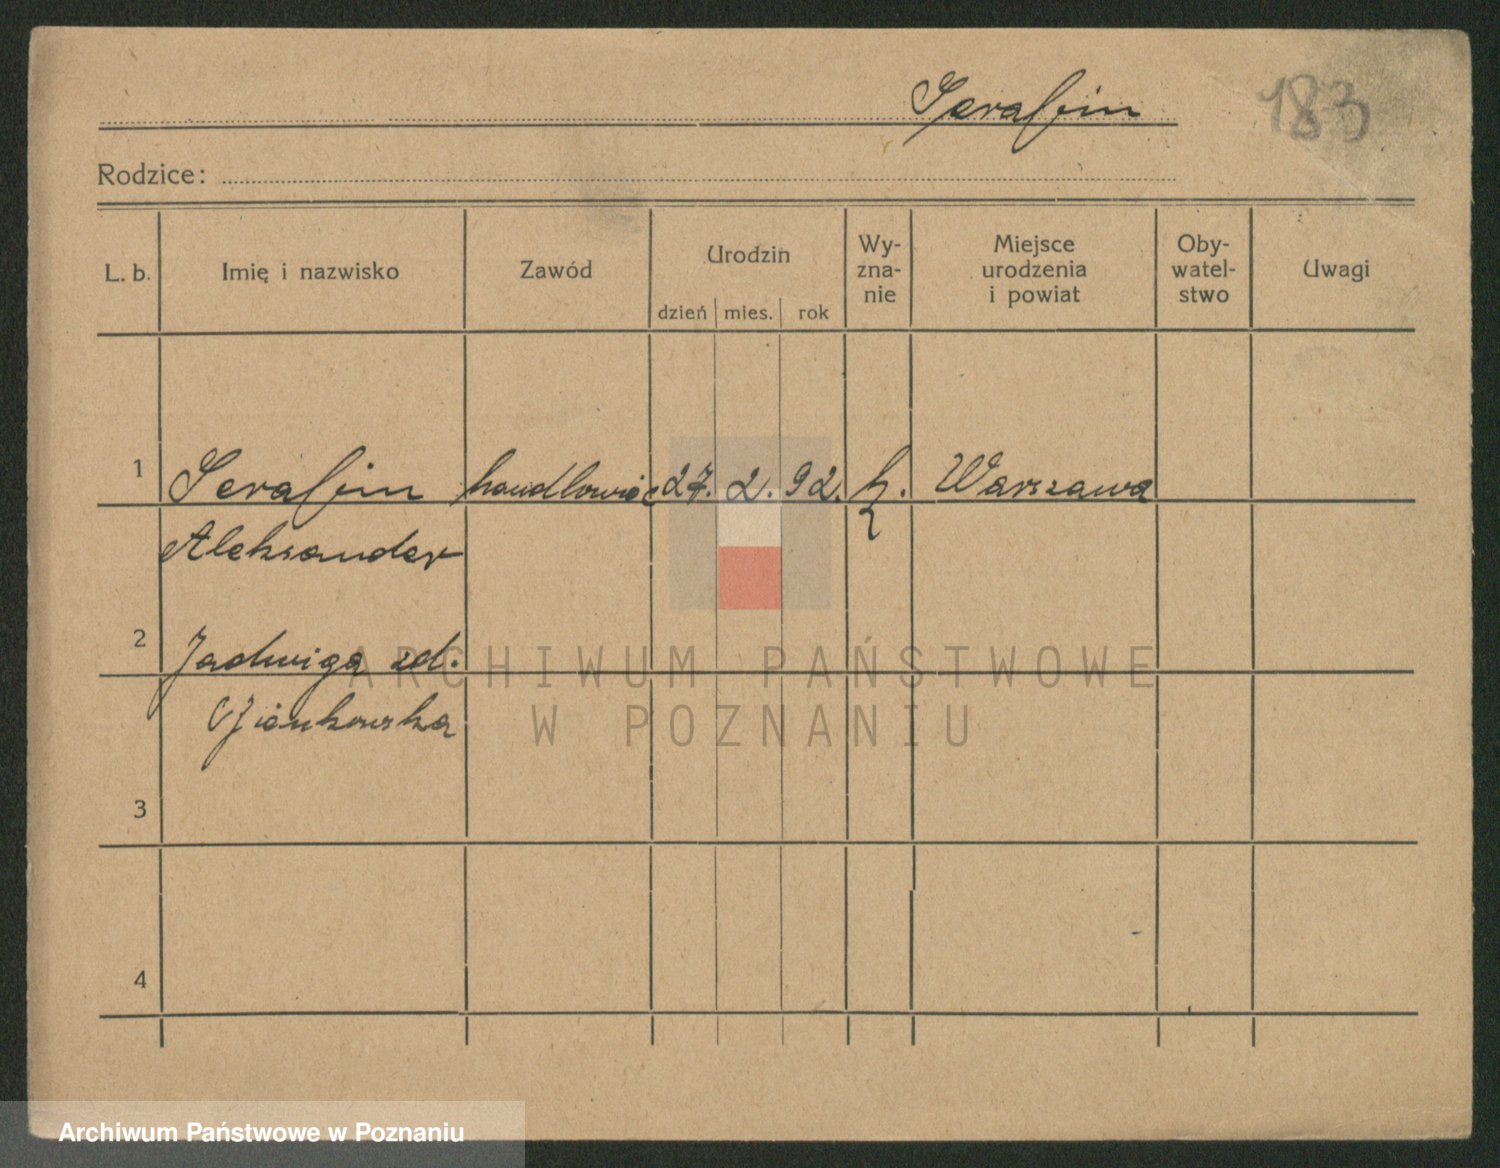 Serafin
183
Rodzice:
L. b.
Imię i nazwisko
Zawód
Urodzin
dzień mies. rok
Wy-
zna-
nie
Miejsce
urodzenia
i powiat
Oby-
watel-
stwo
Uwagi
1 Serafin handlowiec 27. 2. 92. Warszawa
Aleksander
2 Jadwiga zd.
3
4
ARCHIWUM PAŃSTWOWE
W POZNANIU
Archiwum Państwowe w Poznaniu